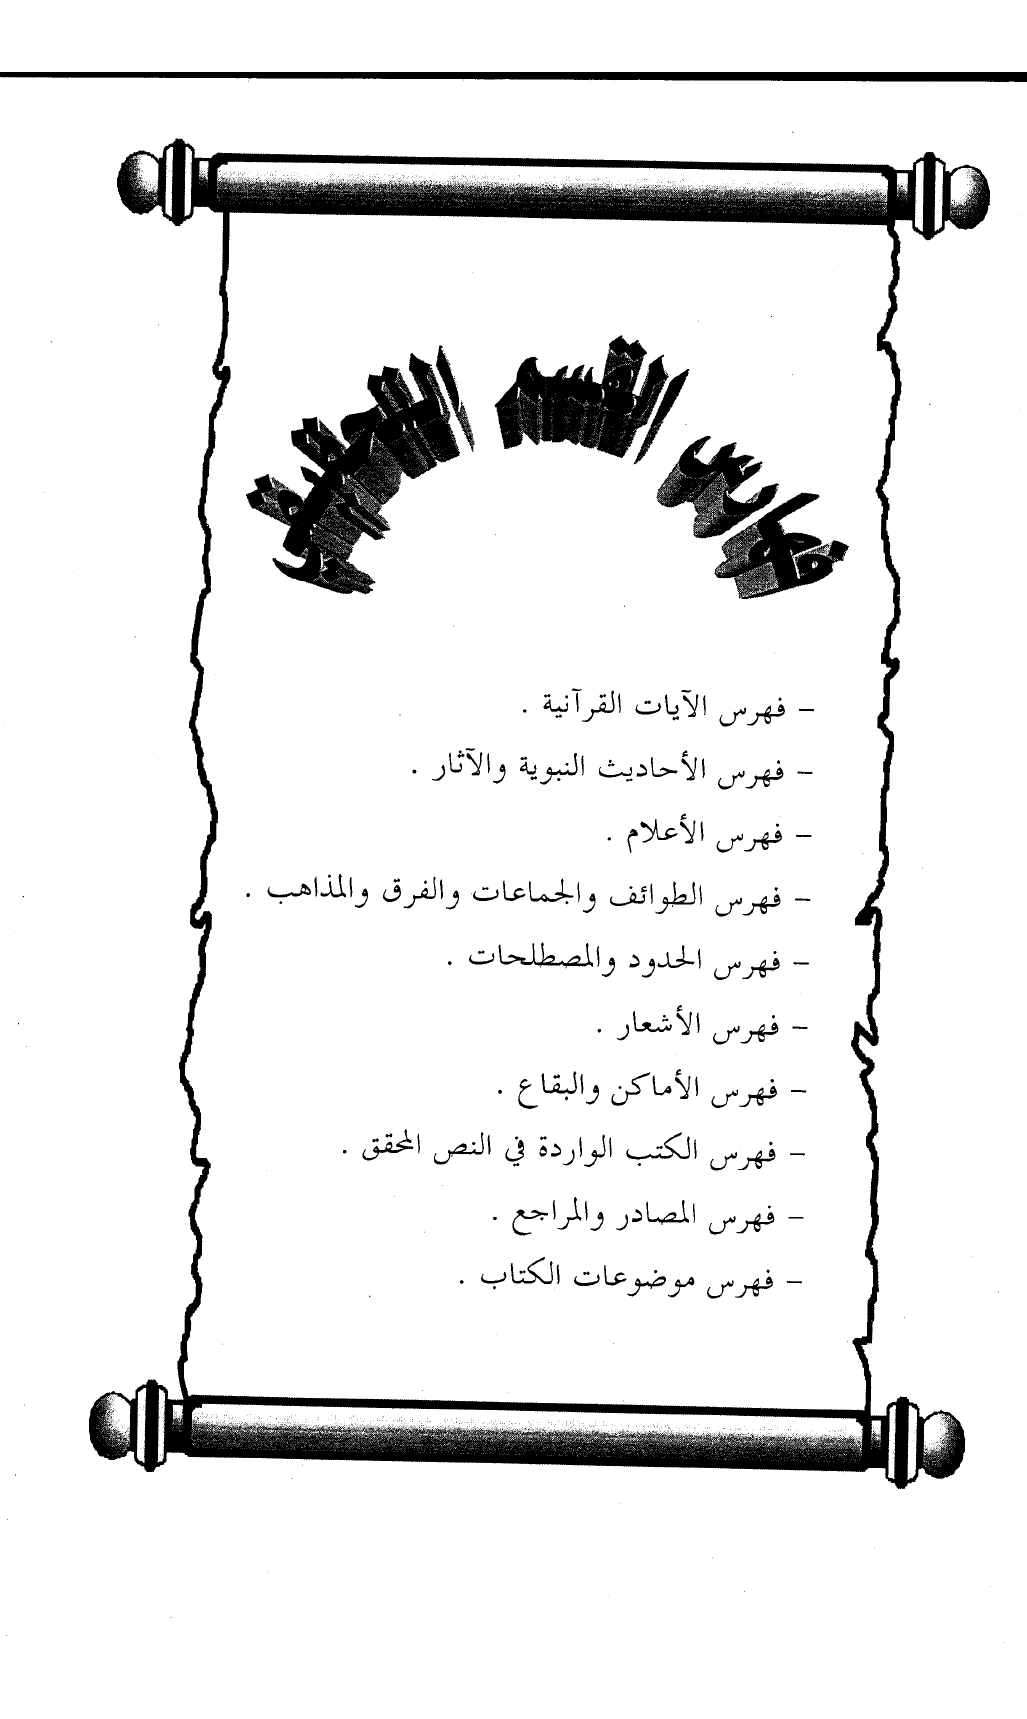 فهارس القسم التحقيقي
– فهرس الآيات القرآنية .
– فهرس الأحاديث النبوية والآثار .
– فهرس الأعلام .
– فهرس الطوائف والجماعات والفرق والمذاهب .
– فهرس الحدود والمصطلحات .
– فهرس الأشعار .
– فهرس الأماكن والبقاع .
– فهرس الكتب الواردة في النص المحقق .
– فهرس المصادر والمراجع .
– فهرس موضوعات الكتاب .